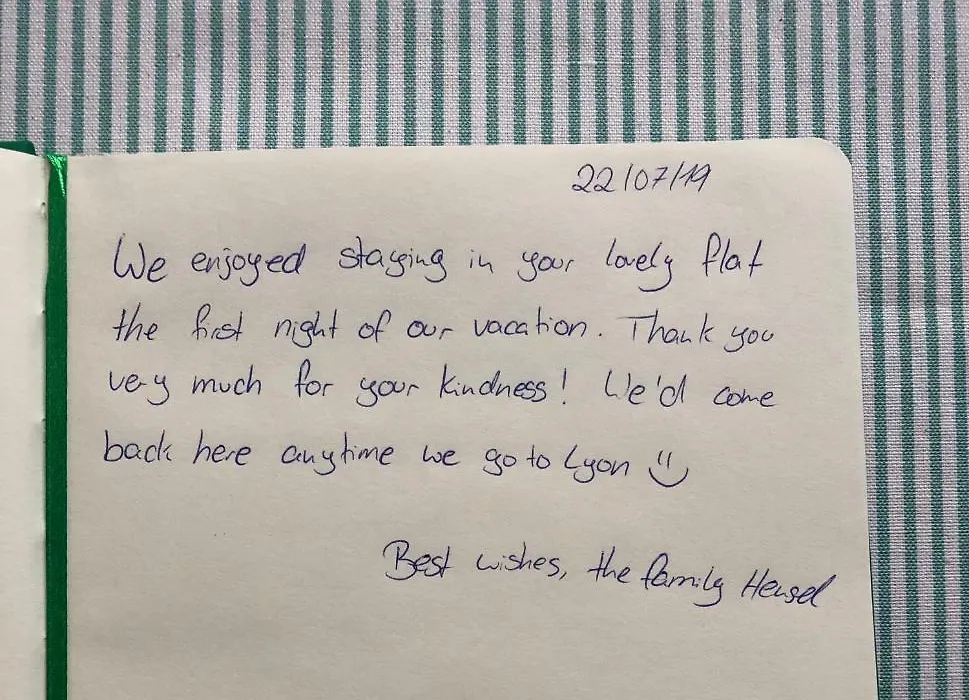 22/07/19
We enjoyed staying in your lovely flat
the first night of our vacation. Thank you
very much for your kindness! We'd come
back here anytime we go to Lyon
Best wishes, the family Hensel